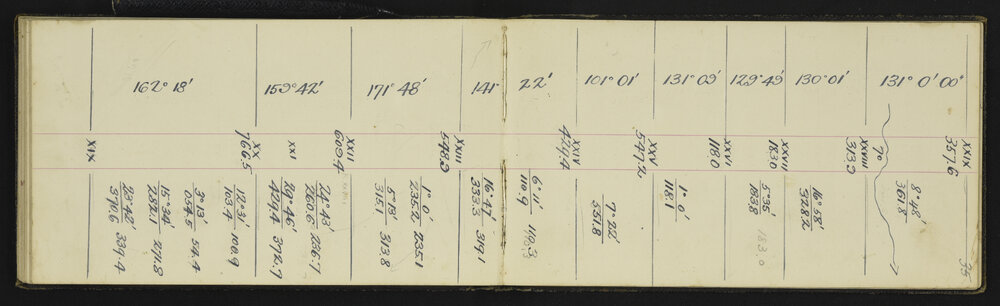 162° 18′
159° 42′
171° 48′
141° 22′
101° 01′
131° 09′
129° 49′
130° 01′
131° 0′ 00″
XIX
XX
766.5
XXI
XXII
609.4
XXIII
548.3
XXIV
424.4
XXV
547.2
XXVI
118.0
XXVII
183.0
XXVIII
313.3
70
XXIX
357.6
23° 42′
370.6 339.4
15° 34′
282.1 271.8
3° 13′
59.4
12° 31′
103.4 100.9
29° 46′
429.4 372.7
236.7
5° 13′
315.1 313.8
1° 0′
235.2 235.1
16° 47′
333.3 319.1
6° 11′
110.9 110.3
7° 22′
551.8
1° 0′
118.1
5° 35′
183.8
183.0
16° 58′
328.2
8° 48′
361.8
35